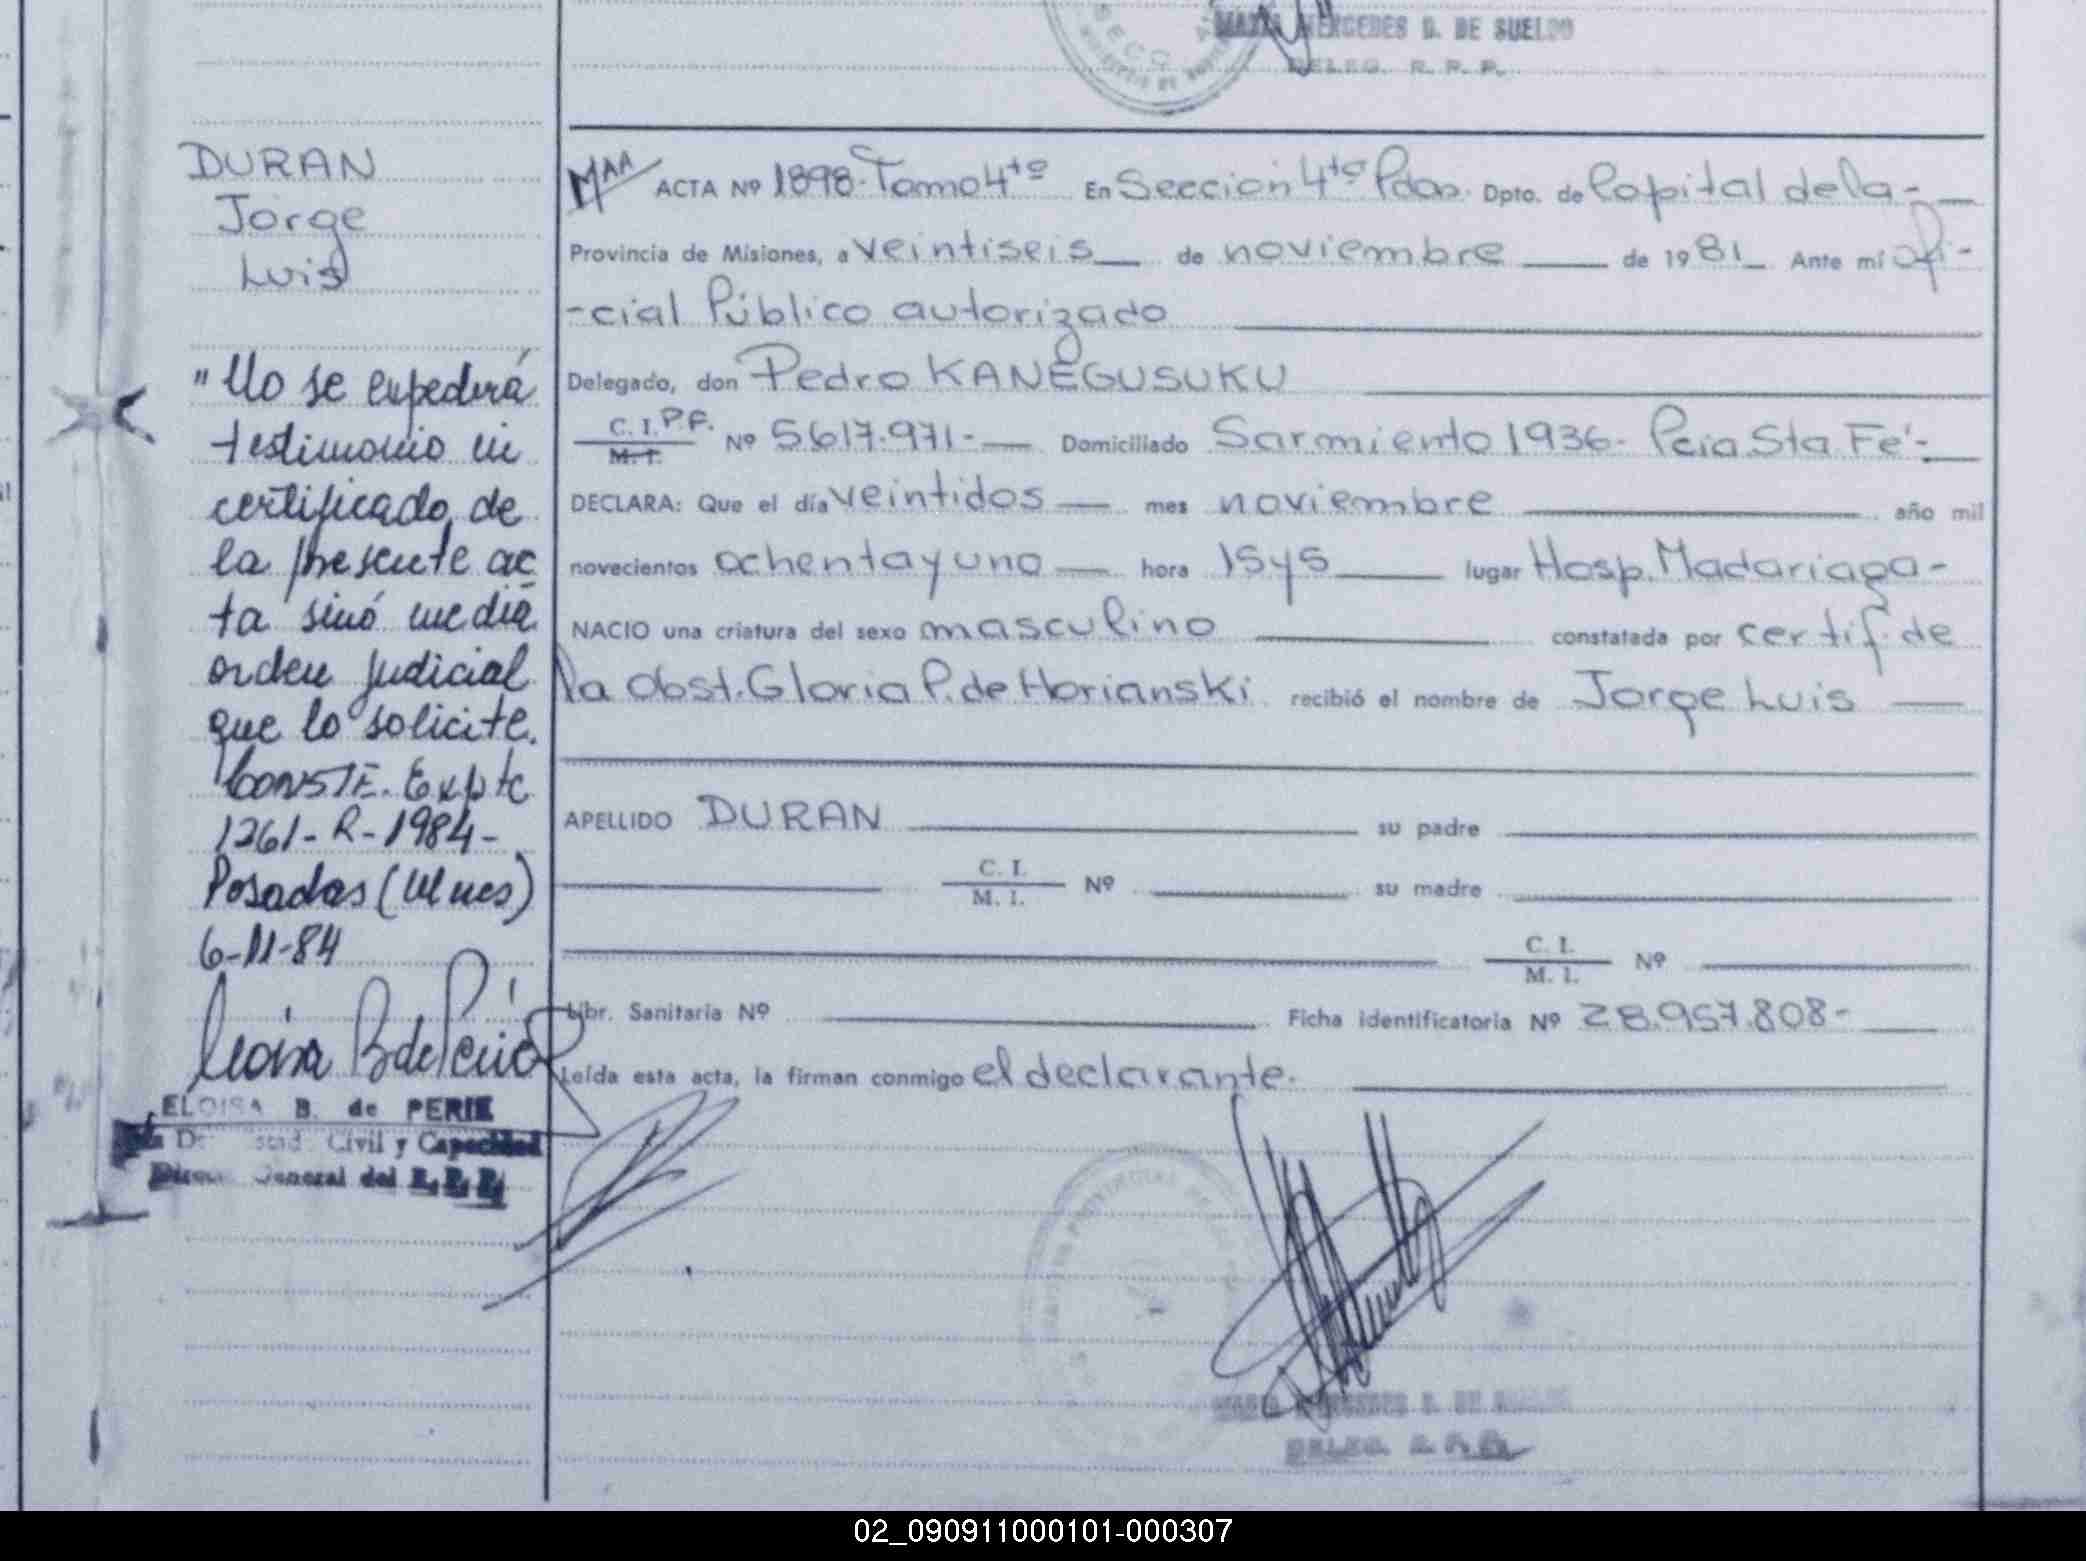 MARIA MERCEDES D. DE SUELDO
DELEG. R. P. P.
DURAN
Jorge
Luis
"No se expedirá
testimonio ni
certificado de
la presente ac
ta sinó media
orden judicial
que lo solicite.
CONSTE. Expte
1261-R-1984-
Posadas (Mnes)
6-11-84
ELOISA B. de PERIE
Civil y Capacidad
General del R. P. P.
MAA ACTA Nº 1898-Tomo 4to En Seccion 4to Pdas. Dpto. de Capital de la-
Provincia de Misiones, a veintiseis de noviembre de 1981 Ante mí ofi-
-cial Público autorizado
Delegado, don Pedro KANEGUSUKU
C. I. P.F. M. I. Nº 5617.971.- Domiciliado Sarmiento 1936- Pcia Sta Fé-
DECLARA: Que el día veintidos mes noviembre año mil
novecientos ochenta y uno hora 15y5 lugar Hosp. Madariaga-
NACIO una criatura del sexo masculino constatada por certif. de
la Obst. Gloria P. de Horianski recibió el nombre de Jorge Luis
APELLIDO DURAN su padre
C. I. M. I. Nº su madre
C. I. M. I. Nº
Libr. Sanitaria Nº Ficha identificatoria Nº 28.957.808-
Leída esta acta, la firman conmigo el declarante.
MARIA MERCEDES D. DE SUELDO
DELEG. R. P. P.
02_090911000101-000307